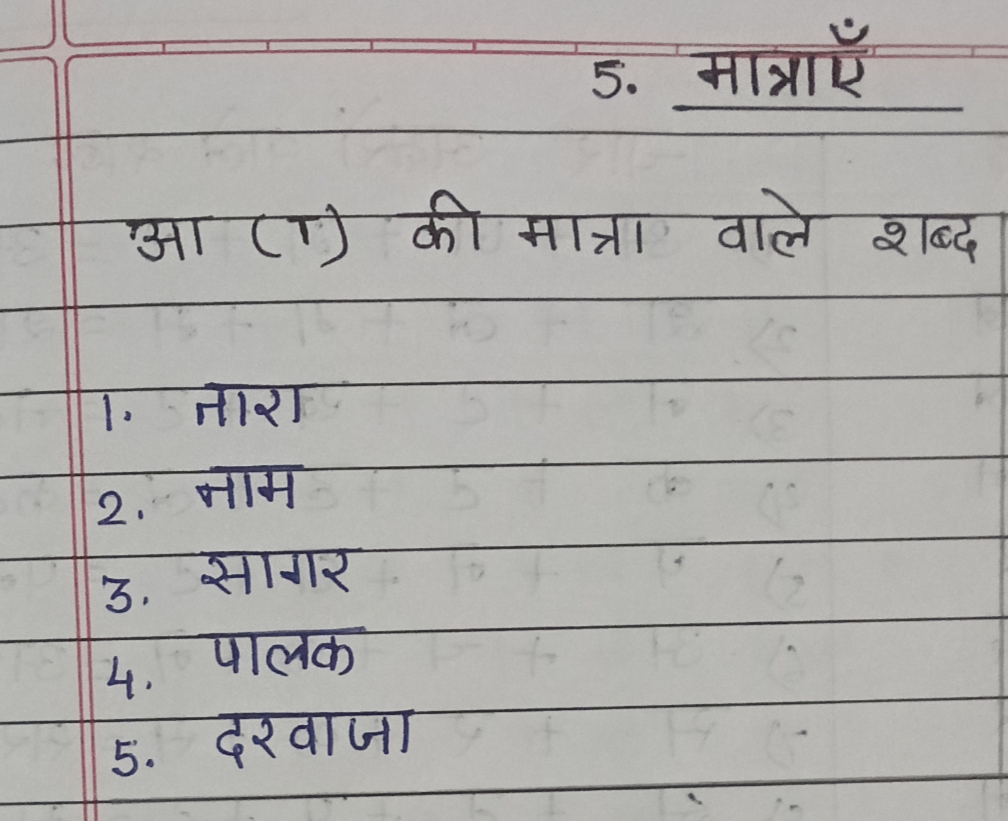 5. मात्राएँ
आ (ा) की मात्रा वाले शब्द
1. तारा
2. नाम
3. सागर
4. पालक
5. दरवाजा